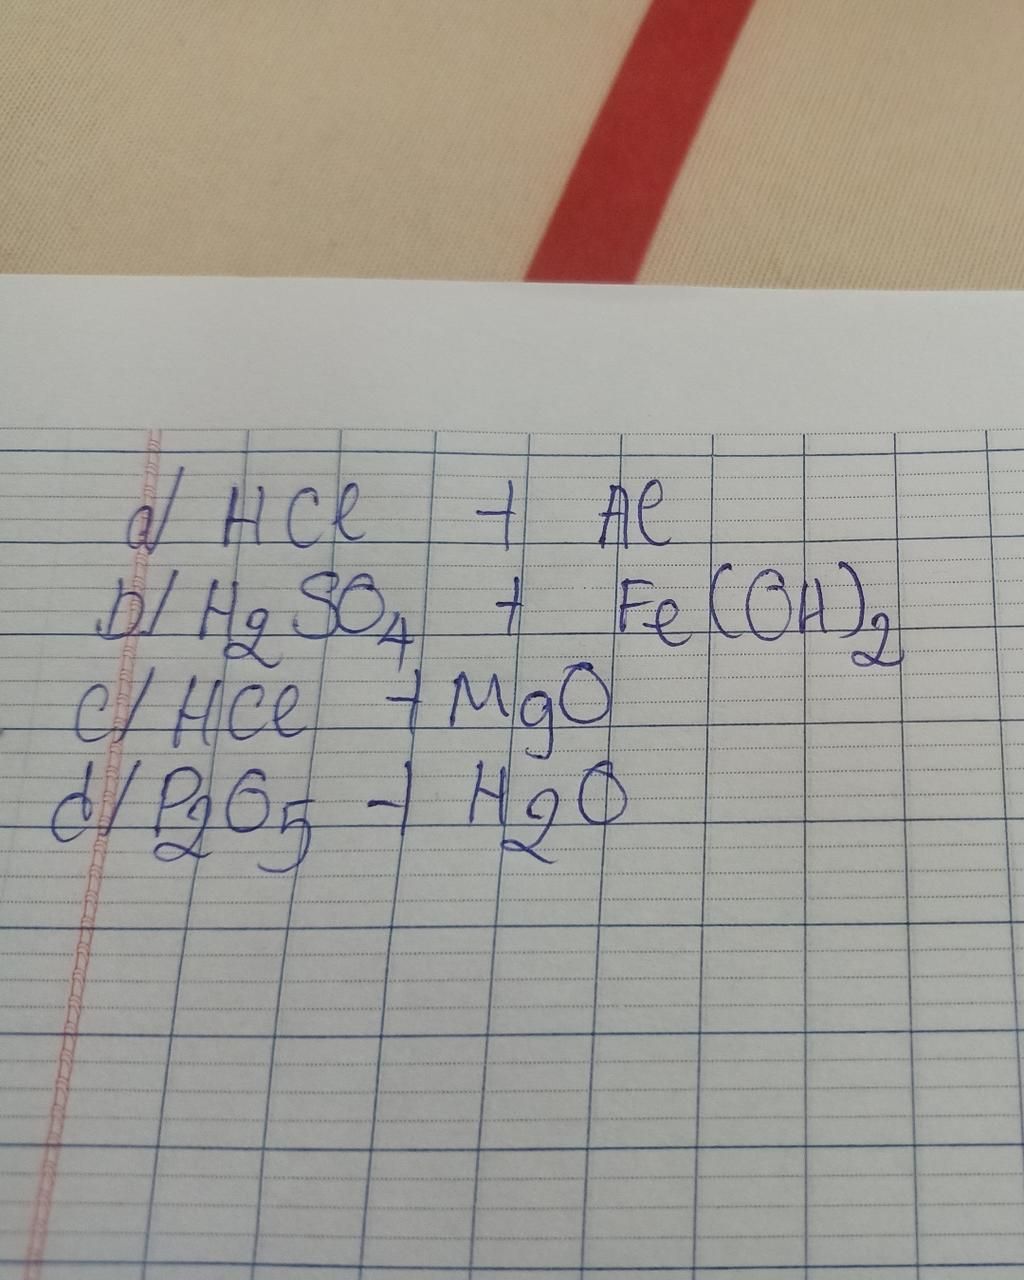 a/ HCl + Al
b/ H₂SO₄ + Fe(OH)₂
c/ HCl + MgO
d/ P₂O₅ + H₂O